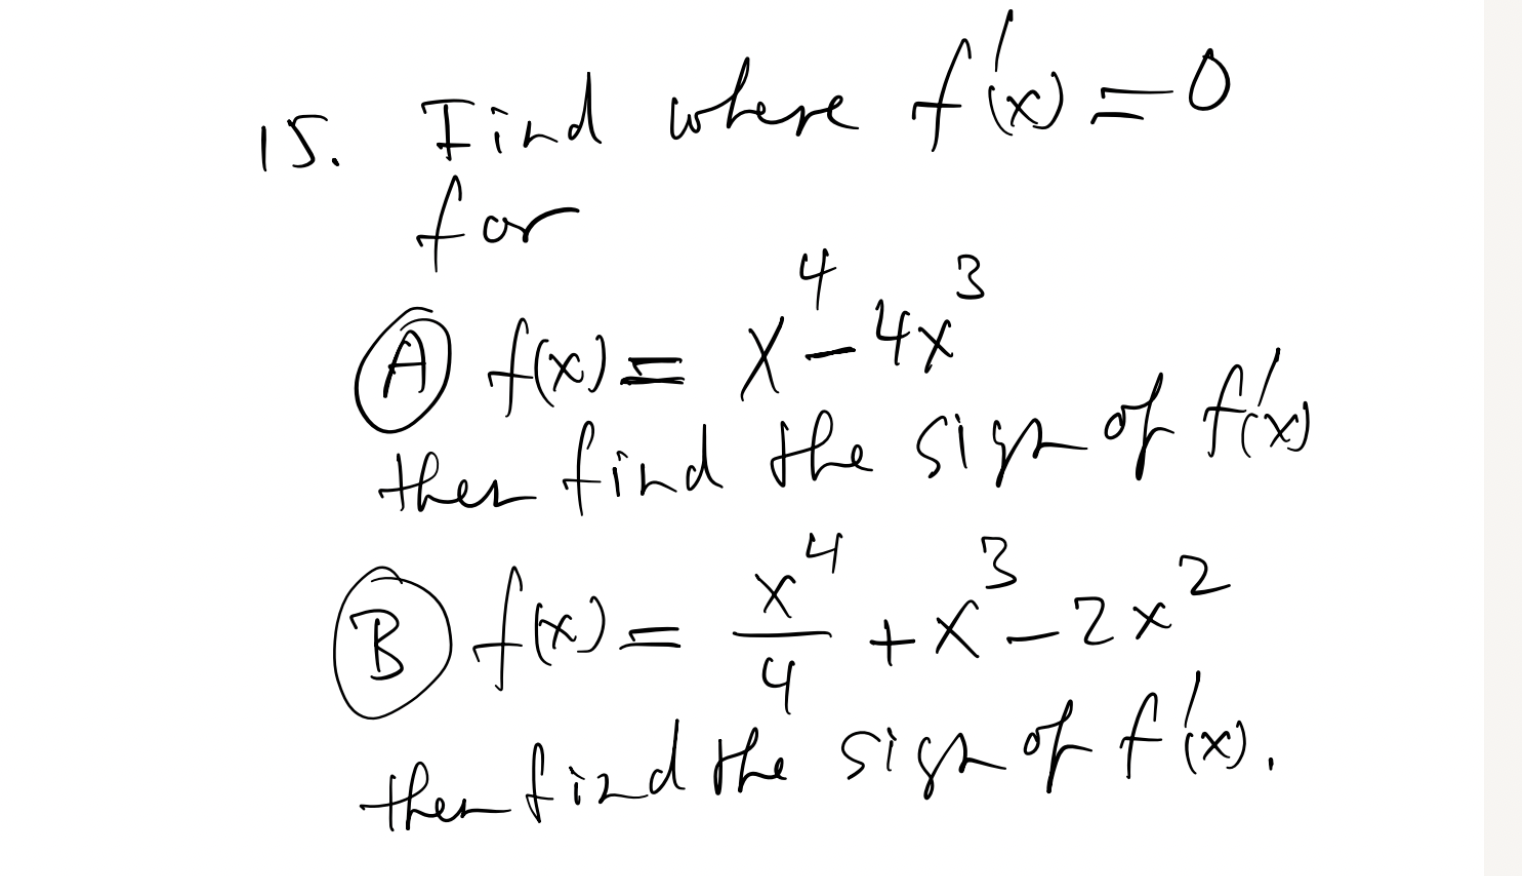 15. Find where f'(x) = 0
for
Ⓐ f(x) = x⁴ - 4x³
then find the sign of f'(x)
Ⓑ f(x) = x⁴/4 + x³ - 2x²
then find the sign of f'(x).